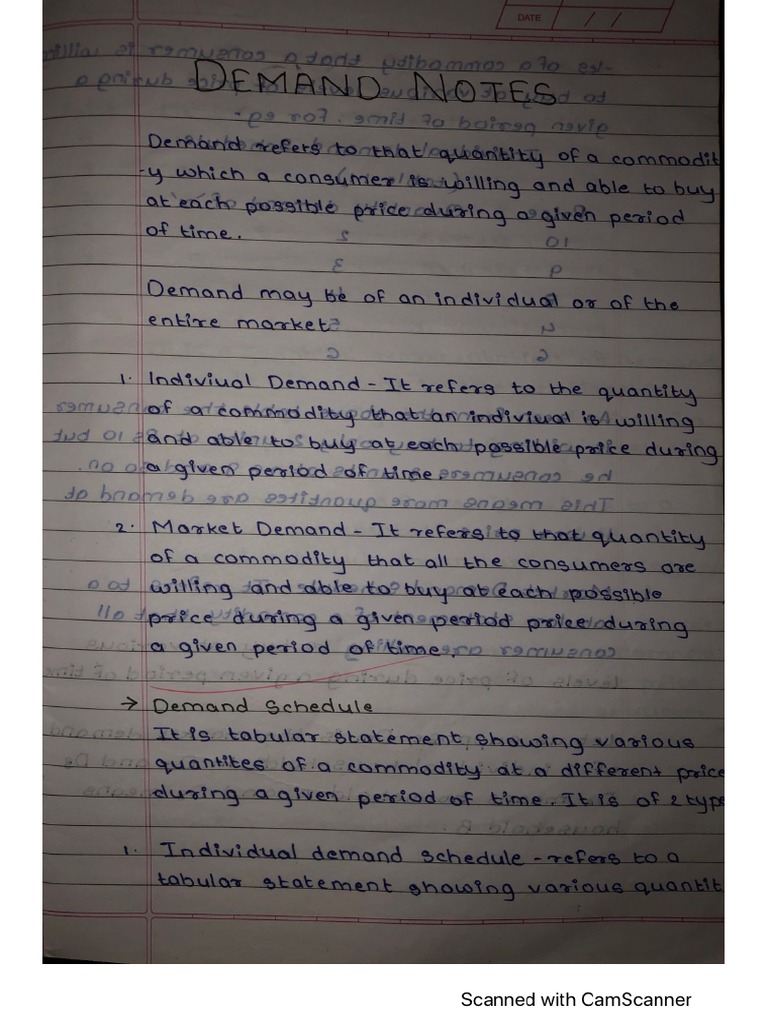 DATE / /
DEMAND NOTES
Demand refers to that quantity of a commodit
-y which a consumer is willing and able to buy
at each possible price during a given period
of time.
Demand may be of an individual or of the
entire market.
1. Indiviual Demand - It refers to the quantity
of a commodity that an indiviual is willing
and able to buy at each possible price during
a given period of time
2. Market Demand - It refers to that quantity
of a commodity that all the consumers are
willing and able to buy at each possible
price during a given period price during
a given period of time.
→ Demand Schedule
It is tabular statement showing various
quantites of a commodity at a different price
during a given period of time. It is of 2 type
1. Individual demand schedule - refers to a
tabular statement showing various quantit
Scanned with CamScanner